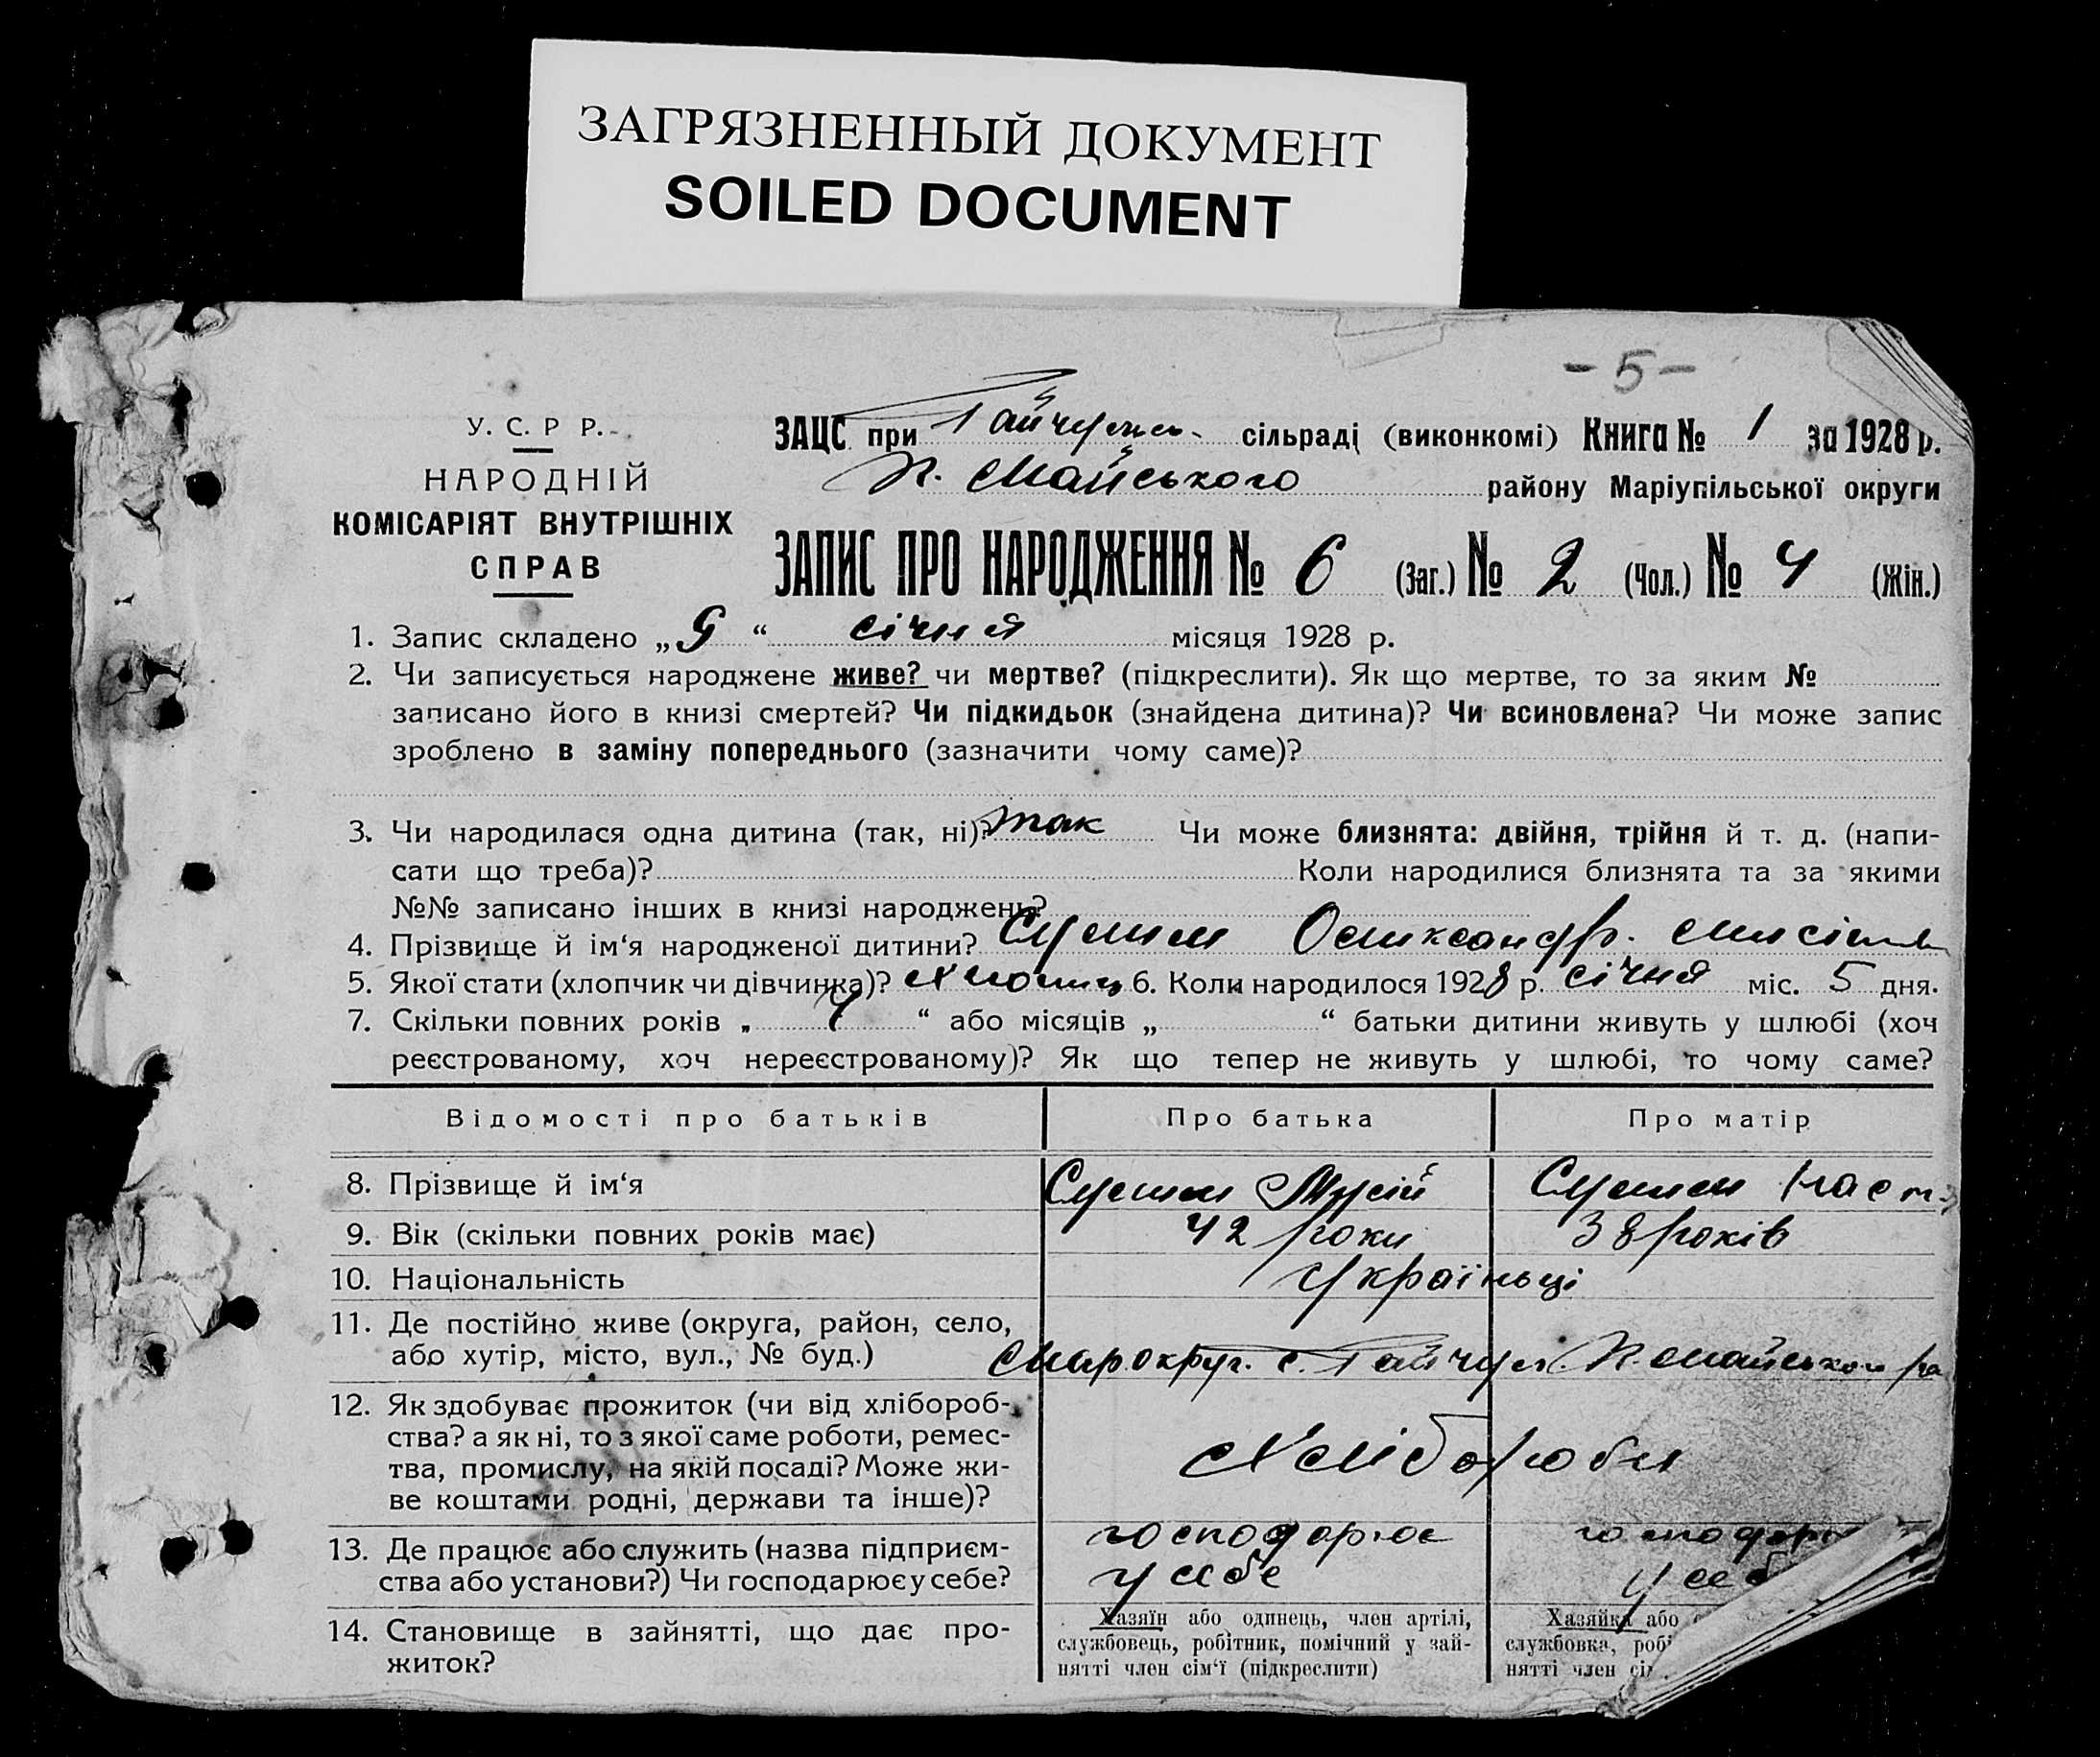 ЗАГРЯЗНЕННЫЙ ДОКУМЕНТ
SOILED DOCUMENT
- 5 -
У. С. Р Р.
НАРОДНІЙ
КОМІСАРІЯТ ВНУТРІШНІХ
СПРАВ
ЗАЦС при сільраді (виконкомі) Книга № 1 за 1928 р.
П. Майського району Маріупільської округи
ЗАПИС ПРО НАРОДЖЕННЯ № 6 (Заг.) № 2 (Чол.) № 4 (Жін.)
1. Запис складено „9“ січня місяця 1928 р.
2. Чи записується народжене живе? чи мертве? (підкреслити). Як що мертве, то за яким №
записано його в книзі смертей? Чи підкидьок (знайдена дитина)? Чи всиновлена? Чи може запис
зроблено в заміну попереднього (зазначити чому саме)?
3. Чи народилася одна дитина (так, ні)? так Чи може близнята: двійня, трійня й т. д. (напи-
сати що треба)? Коли народилися близнята та за якими
№№ записано інших в книзі народжень?
4. Прізвище й ім‘я народженої дитини?
5. Якої стати (хлопчик чи дівчинка)? хлопець 6. Коли народилося 1928 р. січня міс. 5 дня.
7. Скільки повних років „ “ або місяців „ “ батьки дитини живуть у шлюбі (хоч
реєстрованому, хоч нереєстрованому)? Як що тепер не живуть у шлюбі, то чому саме?
Відомості про батьків Про батька Про матір
8. Прізвище й ім‘я Мусій Наст.
9. Вік (скільки повних років має) 42 роки 38 років
10. Національність Україньці
11. Де постійно живе (округа, район, село,
або хутір, місто, вул., № буд.) Мар. округ. с. Гайчул П. Майського ра
12. Як здобуває прожиток (чи від хлібороб-
ства? а як ні, то з якої саме роботи, ремес-
тва, промислу, на якій посаді? Може жи-
ве коштами родні, держави та інше)? Хлібороби
13. Де працює або служить (назва підприєм-
ства або установи?) Чи господарює у себе?
господарює у себе
14. Становище в зайнятті, що дає про-
житок?
Хазяїн або одинець, член артілі,
службовець, робітник, помічний у зай-
нятті член сім‘ї (підкреслити)
Хазяйка або
службовка, робі
нятті член сі